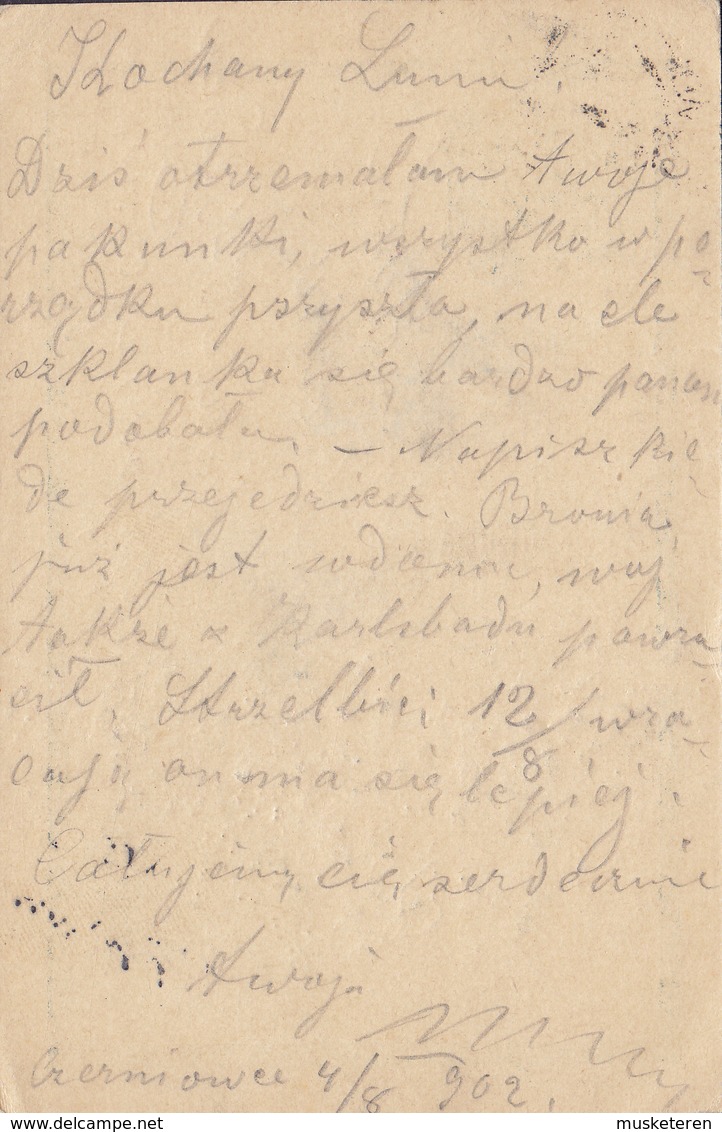 Kochany Luniu!
Dziś otrzemałam twoje
pakunki, wszystko w po-
rządku przyszło, na ele
szklanka się bardzo panom
podobała, – Napisz kie-
de przejedziesz. Bronia
już jest wdomu, wuj
także z Karlsbadu powró-
cił, Strzelbici 12/8 wra-
cają, on ma się lepiej.
Całujemy cię serdecznie
twoja
Czerniowce 4/8 902.
musketeren delcampe.net